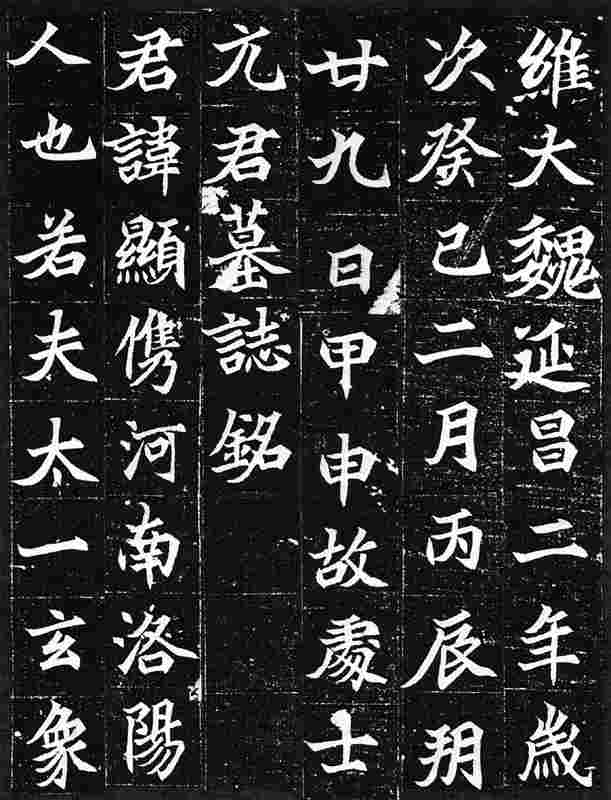 維大魏延昌二年歲
次癸巳二月丙辰朔
廿九日甲申故處士
元君墓誌銘
君諱顯儁河南洛陽
人也若夫太一玄象